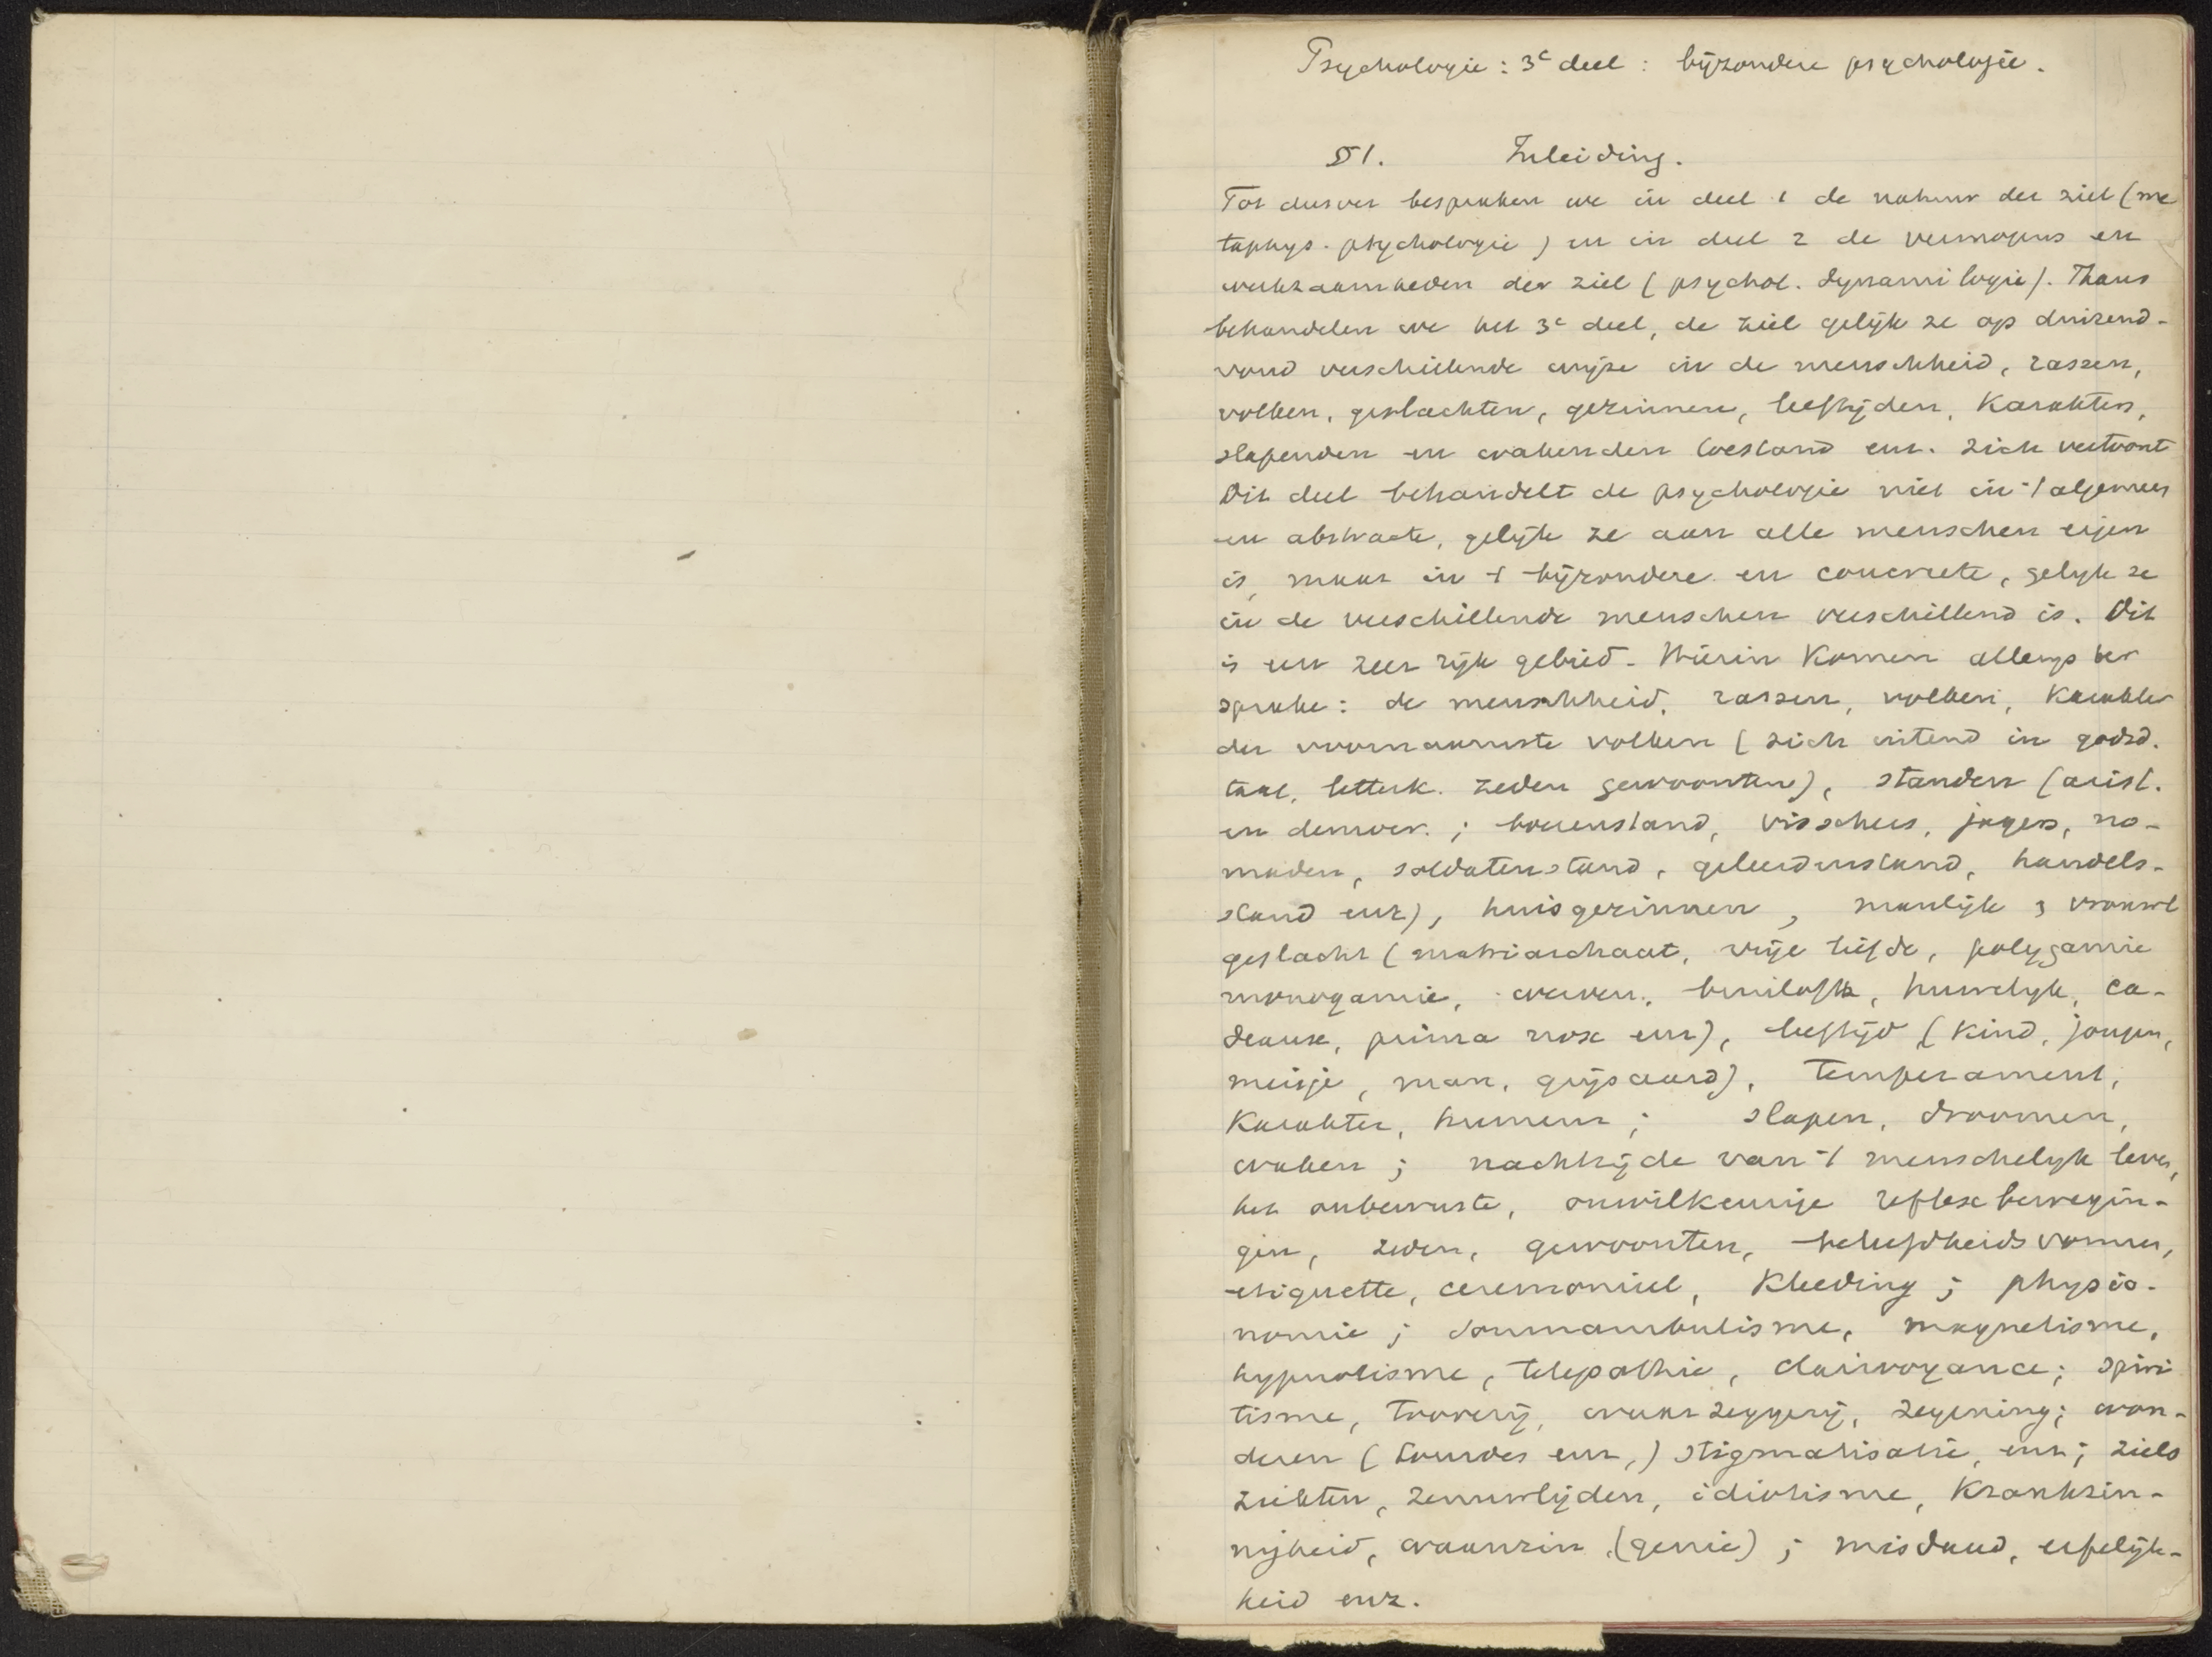 Psychologie: 3e deel: bijzondere psychologie.
§1. Inleiding.
Tot dusver bespraken we in deel 1 de natuur der ziel (me
taphys. psychologie) en in deel 2 de vermogens en
werkzaamheden der ziel (psychol. dynamilogie). Thans
behandelen we het 3e deel, de ziel gelijk ze op duizend-
voud verschillende wijze in de menschheid, rassen,
volken, geslachten, gezinnen, leeftijden, karakters,
slapenden en wakenden toestand enz. zich vertoont
Dit deel behandelt de psychologie niet in 't algemeen
en abstracte, gelijk ze aan alle menschen eigen
is, maar in 't bijzondere en concrete, gelijk ze
in de verschillende menschen verschillend is. Dit
is een zeer rijk gebied. Hierin komen allengs ter
sprake: de menschheid, rassen, volken, karakter
der voornaamste volken (zich uitend in godsd.
taal, letterk. zeden gewoonten), standen (arist.
en democr.; boerenstand, visschers, jagers, no-
maden, soldatenstand, geleerdenstand, handels-
stand enz), huisgezinnen, manlijk & vrouwl
geslacht (matriarchaat, vrije liefde, polygamie
monogamie, weven, bruiloft, huwelijk, ca-
deaux, prima nox enz), leeftijd (kind, jongen,
meisje, man, grijsaard), temperament,
karakter, humeur; slapen, droomen,
waken; nachtzijde van 't menschelijk leven,
het onbewuste, onwilkeurige reflexbewegin-
gen, zeden, gewoonten, beleefdheidsvormen,
etiquette, ceremonieel, kleeding; physio-
nomie; somnambulisme, magnetisme,
hypnotisme, telepathie, clairvoyance; spiri
tisme, tooverij, waarzeggerij, zegening; won-
deren (Lourdes enz,) stigmatisatie, enz; ziels
ziekten, zenuwlijden, idiotisme, krankzin-
nigheid, waanzin (genie); misdaad, erfelijk-
heid enz.